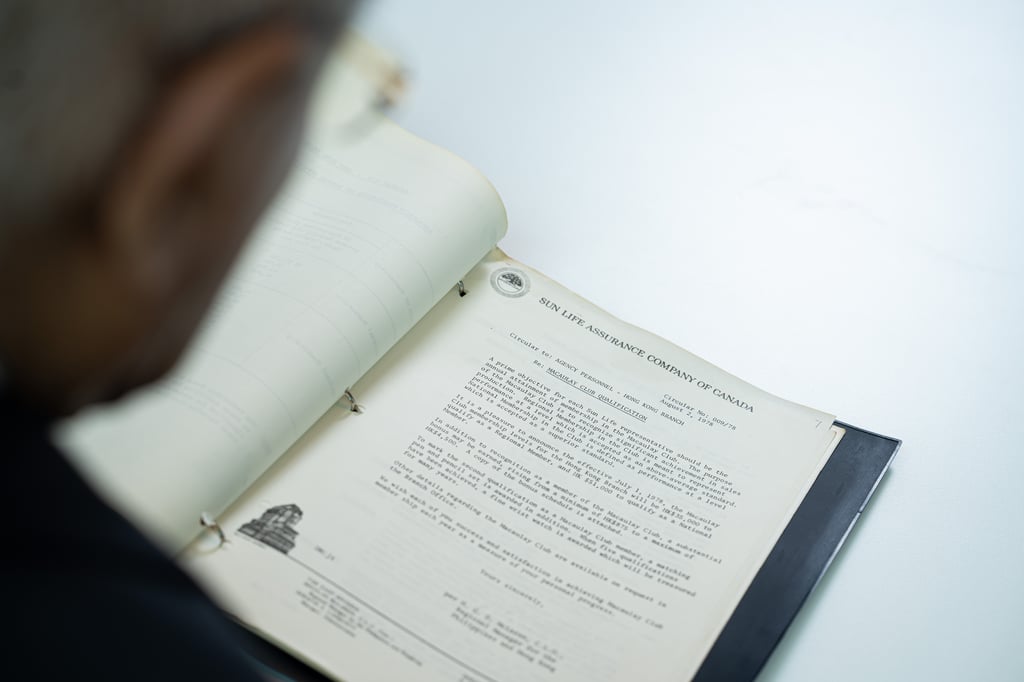 7
SUN LIFE ASSURANCE COMPANY OF CANADA
Circular No. 009/78
August 7, 1978
Circular to: AGENCY PERSONNEL - HONG KONG BRANCH
Re: MACAULAY CLUB QUALIFICATION
A prime objective for each Sun Life representative should be the
annual attainment of membership in the Macaulay Club. The purpose
of the Macaulay Club is to recognise significant achievement in sales
production. Regional Membership in the Club is meant to represent
performance at a level which is accepted as an above-average standard.
National Membership in the Club is defined as performance at a level
which is accepted as a superior standard.
It is a pleasure to announce the effective July 1, 1978, the Macaulay
Club membership level for the Hong Kong Branch will be HK$36,000 to
qualify as a Regional Member, and HK $51,000 to qualify as a National
Member.
In addition to recognition as a member of the Macaulay Club, a substantial
bonus may be earned rising from a minimum of HK$875 to a maximum of
HK$4,500. A copy of the bonus schedule is attached.
To mark the second qualification as a Macaulay Club member, a matching
pen and pencil set is awarded in addition. When five qualifications
have been achieved, a fine wrist watch is awarded which will be treasured
for many years.
Other details regarding the Macaulay Club are available on request in
the Branch Office.
We wish each of you success and satisfaction in achieving Macaulay Club
membership each year as a measure of your personal progress.
Yours sincerely,
Regional Manager for the
Philippines and Hong Kong